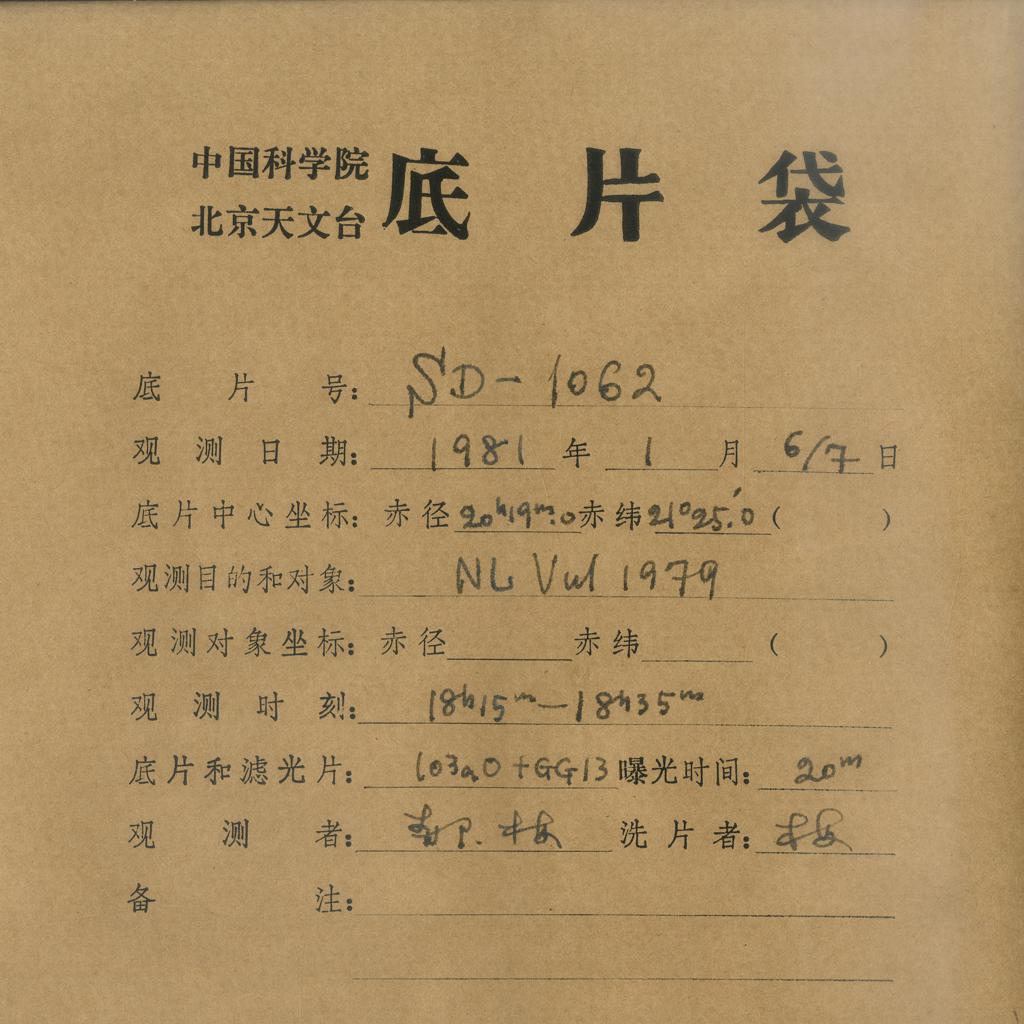 中国科学院
北京天文台
底片袋
底片号: SD-1062
观测日期: 1981年1月6/7日
底片中心坐标: 赤径20ʰ19ᵐ.0赤纬21°25′.0 ( )
观测目的和对象: NL Vul 1979
观测对象坐标: 赤径 赤纬 ( )
观测时刻: 18ʰ15ᵐ-18ʰ35ᵐ
底片和滤光片: 103aO+GG13 曝光时间: 20ᵐ
观测者: 洗片者:
备注: